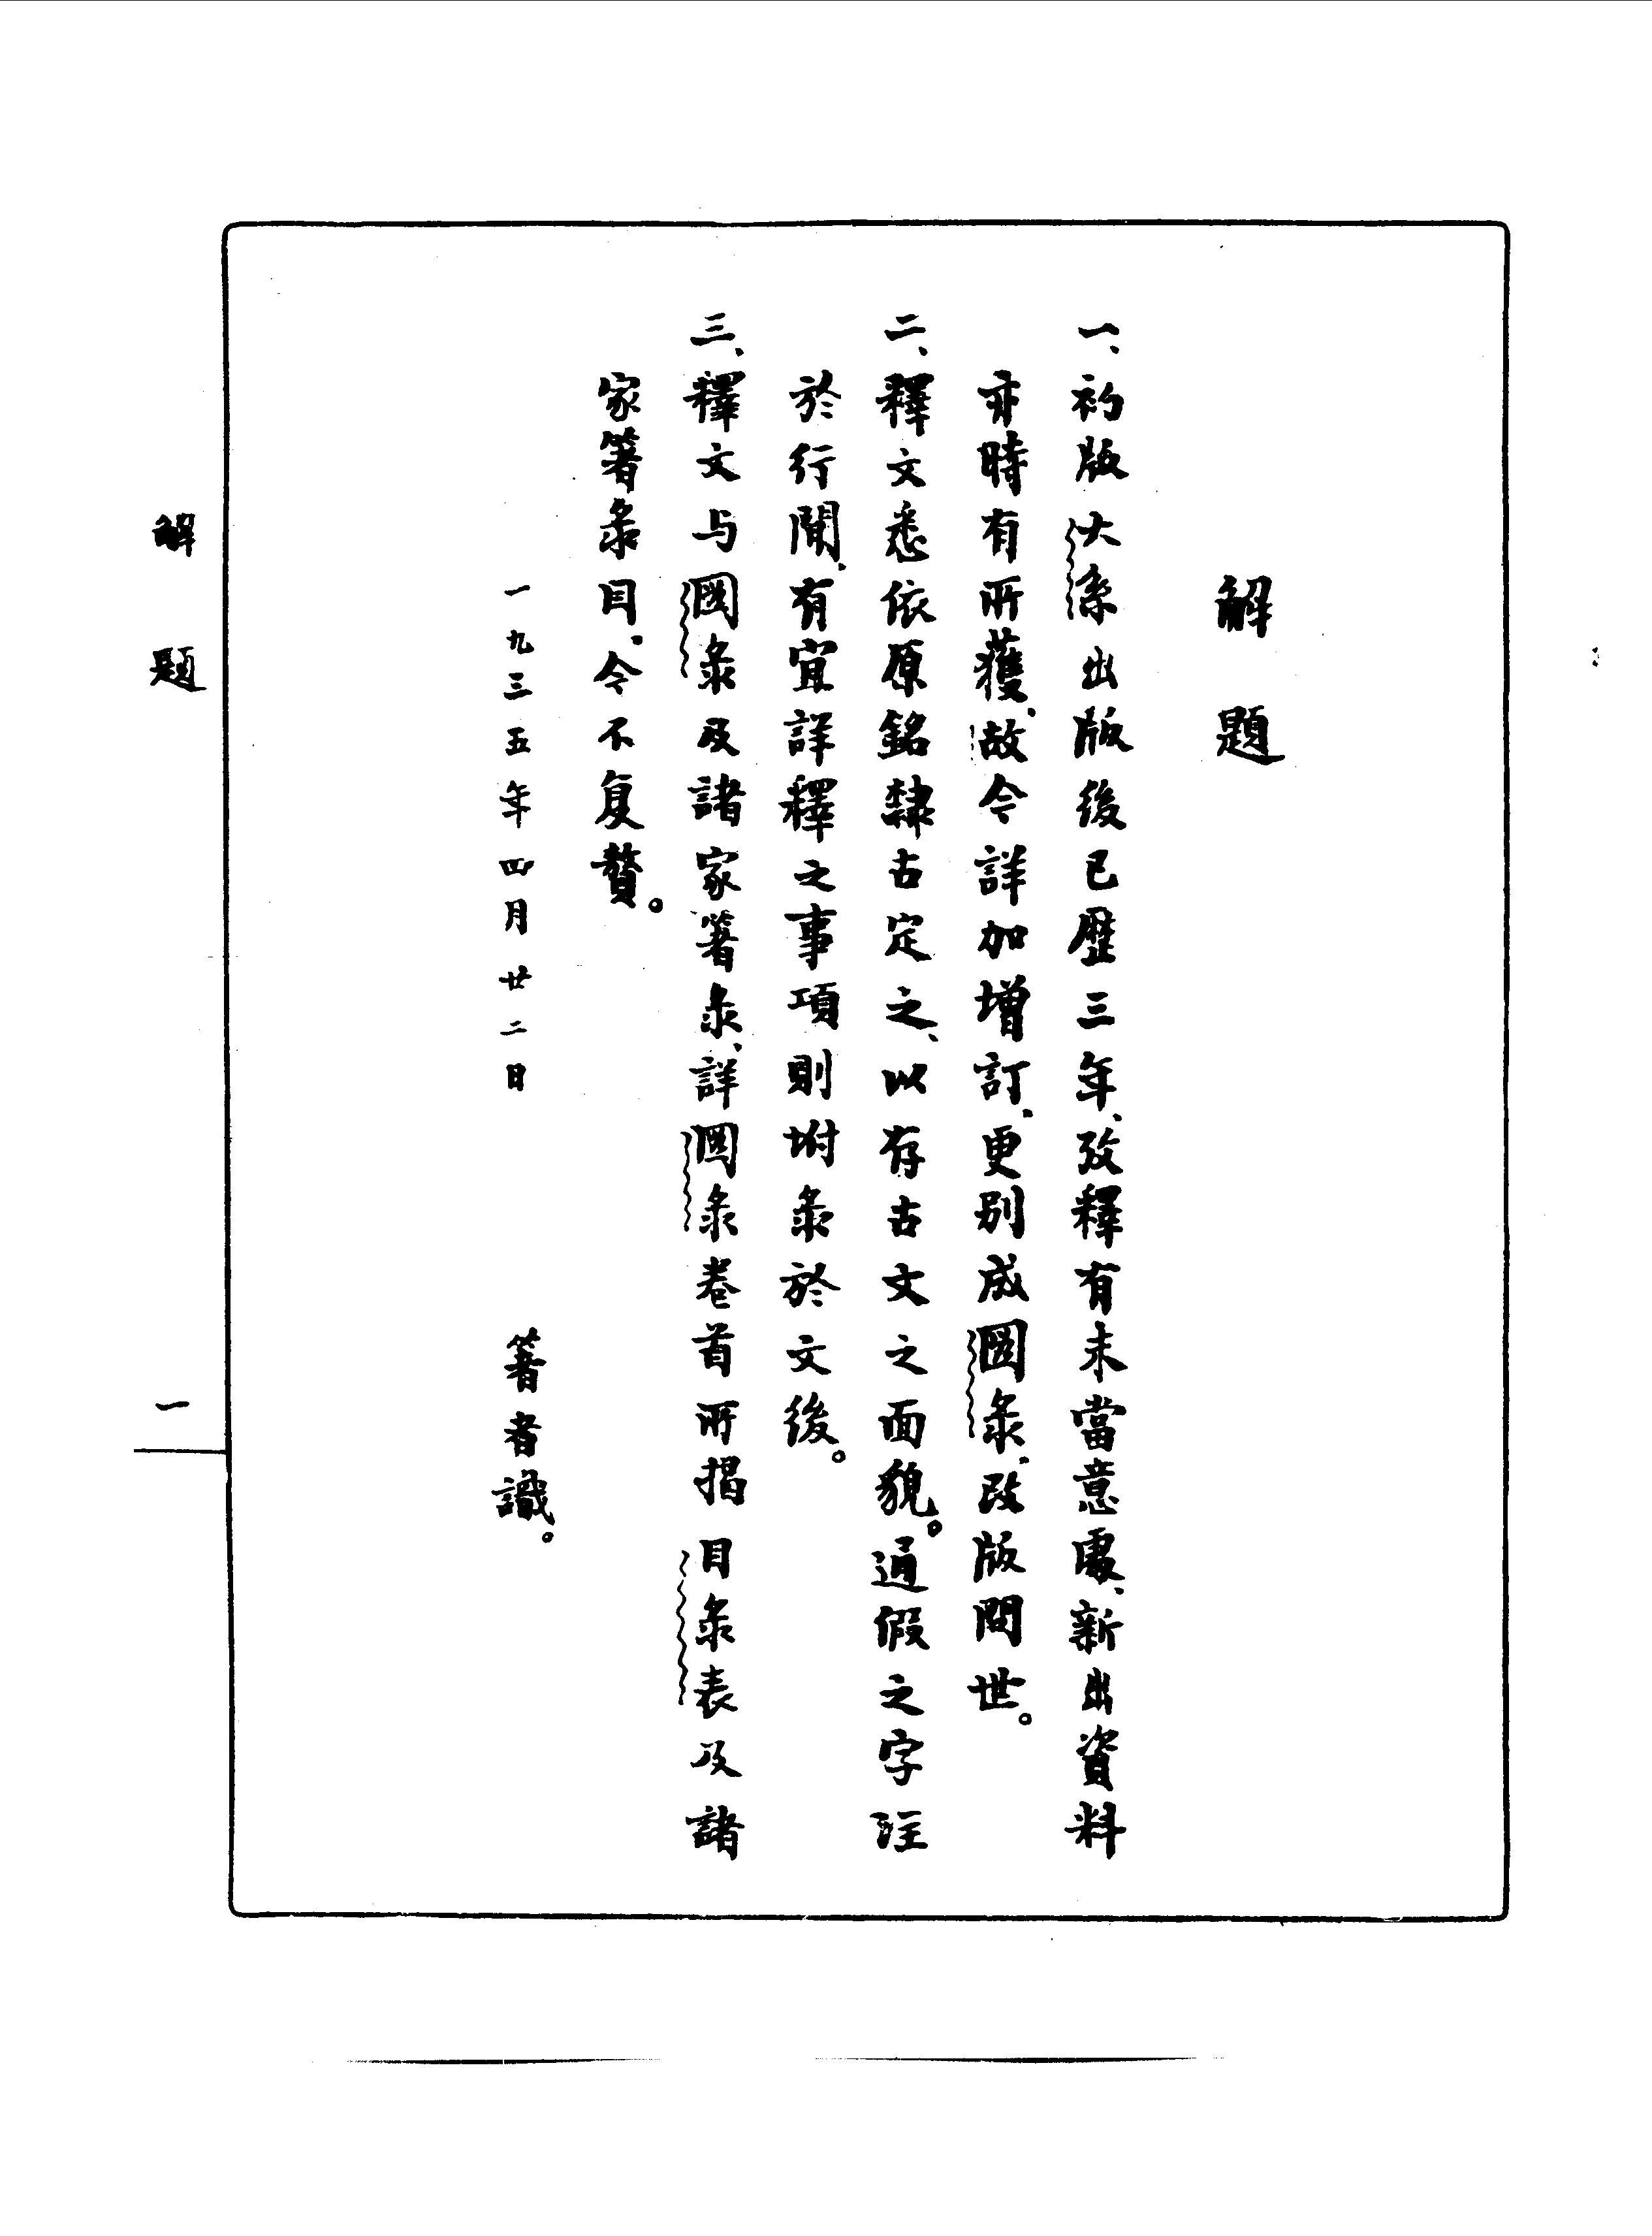 解題
一、初版大系出版後已歷三年、攷釋有未當意處、新出資料
亦時有所獲、故今詳加增訂、更別成圖彔、改版問世。
二、釋文悉依原銘隸古定之、以存古文之面貌。通假之字注
於行間、有宜詳釋之事項則坿彔於文後。
三、釋文与圖彔及諸家箸彔、詳圖彔卷首所揭目彔表及諸
家箸彔目、今不复贅。
一九三五年四月廿二日　箸者識。
解題
一